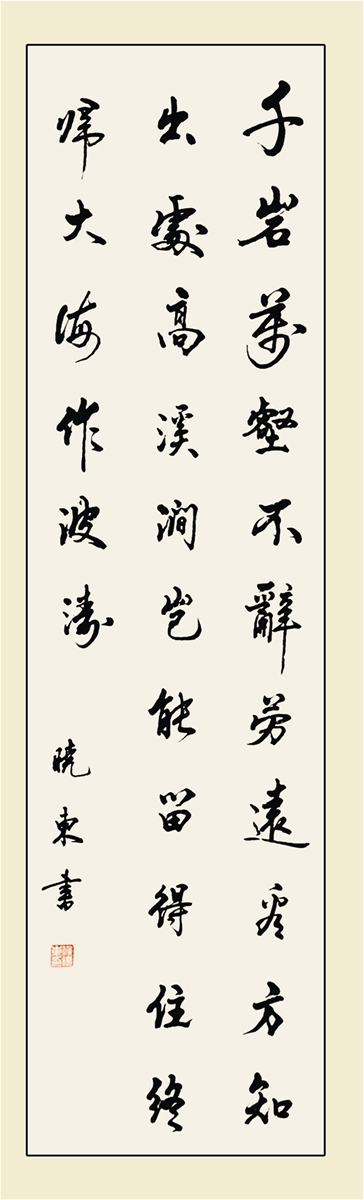 千岩萬壑不辭勞遠看方知
出處高溪澗豈能留得住終
歸大海作波濤
曉東書